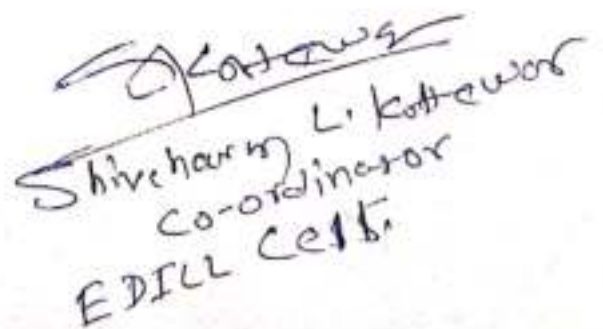 SKottewar
Shivcharn L. Kottewar
Co-ordinator
EDILL Cell.